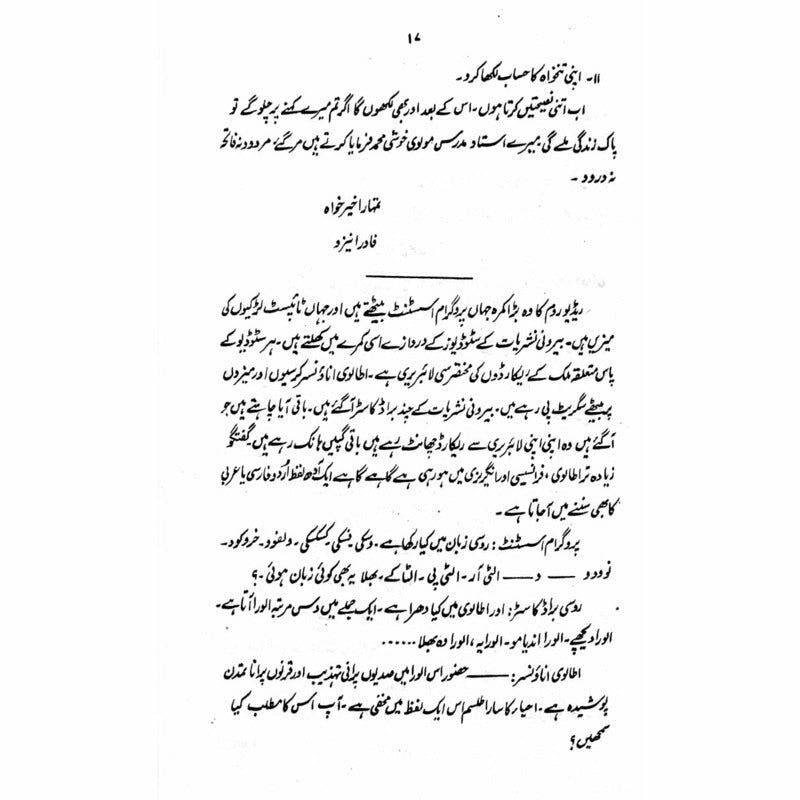 ۱۷
۱۱۔ اپنی تنخواہ کا حساب لکھا کرو۔
اب اتنی نصیحتیں کرتا ہوں۔ اس کے بعد اور بھی لکھوں گا اگر تم میرے کہنے پر چلو گے تو
پاک زندگی ملے گی میرے استاد مدرس مولوی خوشی محمد فرمایا کرتے ہیں مر گئے مردود نہ فاتحہ
نہ درود۔
تمہارا خیر خواہ
فادر انیزو
ریڈیو روم کا وہ بڑا کمرہ جہاں پروگرام اسسٹنٹ بیٹھتے ہیں اور جہاں ٹائپسٹ لڑکیوں کی
میزیں ہیں۔ بیرونی نشریات کے سٹوڈیوز کے دروازے اسی کمرے میں کھلتے ہیں۔ ہر سٹوڈیو کے
پاس متعلقہ ملک کے ریکارڈوں کی مختصر سی لائبریری ہے۔ اطالوی اناؤنسر کرسیوں اور میزوں
پر بیٹھے سگریٹ پی رہے ہیں۔ بیرونی نشریات کے چند براڈ کاسٹر آگئے ہیں۔ باقی آیا چاہتے ہیں جو
آگئے ہیں وہ اپنی اپنی لائبریری سے ریکارڈ چھانٹ رہے ہیں باقی گپیں ہانک رہے ہیں گفتگو
زیادہ تر اطالوی، فرانسیسی اور انگریزی میں ہو رہی ہے گاہے گاہے ایک آدھ لفظ اُردو فارسی یا عربی
کا بھی سننے میں آ جاتا ہے۔
پروگرام اسسٹنٹ: روسی زبان میں کیا رکھا ہے۔ دسکی ینسکی کسکسکی۔ ولفود۔ خروکود۔
نو ودو ــــ و ــــ التی آر۔ التی پی۔ التاکے۔ بھلا یہ بھی کوئی زبان ہوئی۔؟
روسی براڈ کاسٹر: اور اطالوی میں کیا دھرا ہے۔ ایک جملے میں دس مرتبہ الورا آتا ہے۔
الورا دیکھیے۔ الورا اندیامو۔ الورا یہ، الورا وہ بھلا ......
اطالوی اناؤنسر: ــــ حضور اس الورا میں صدیوں پرانی تہذیب اور قرنوں پرانا تمدن
پوشیدہ ہے۔ احیاء کا سارا طلسم اس ایک لفظ میں مخفی ہے۔ آپ اس کا مطلب کیا
سمجھیں؟